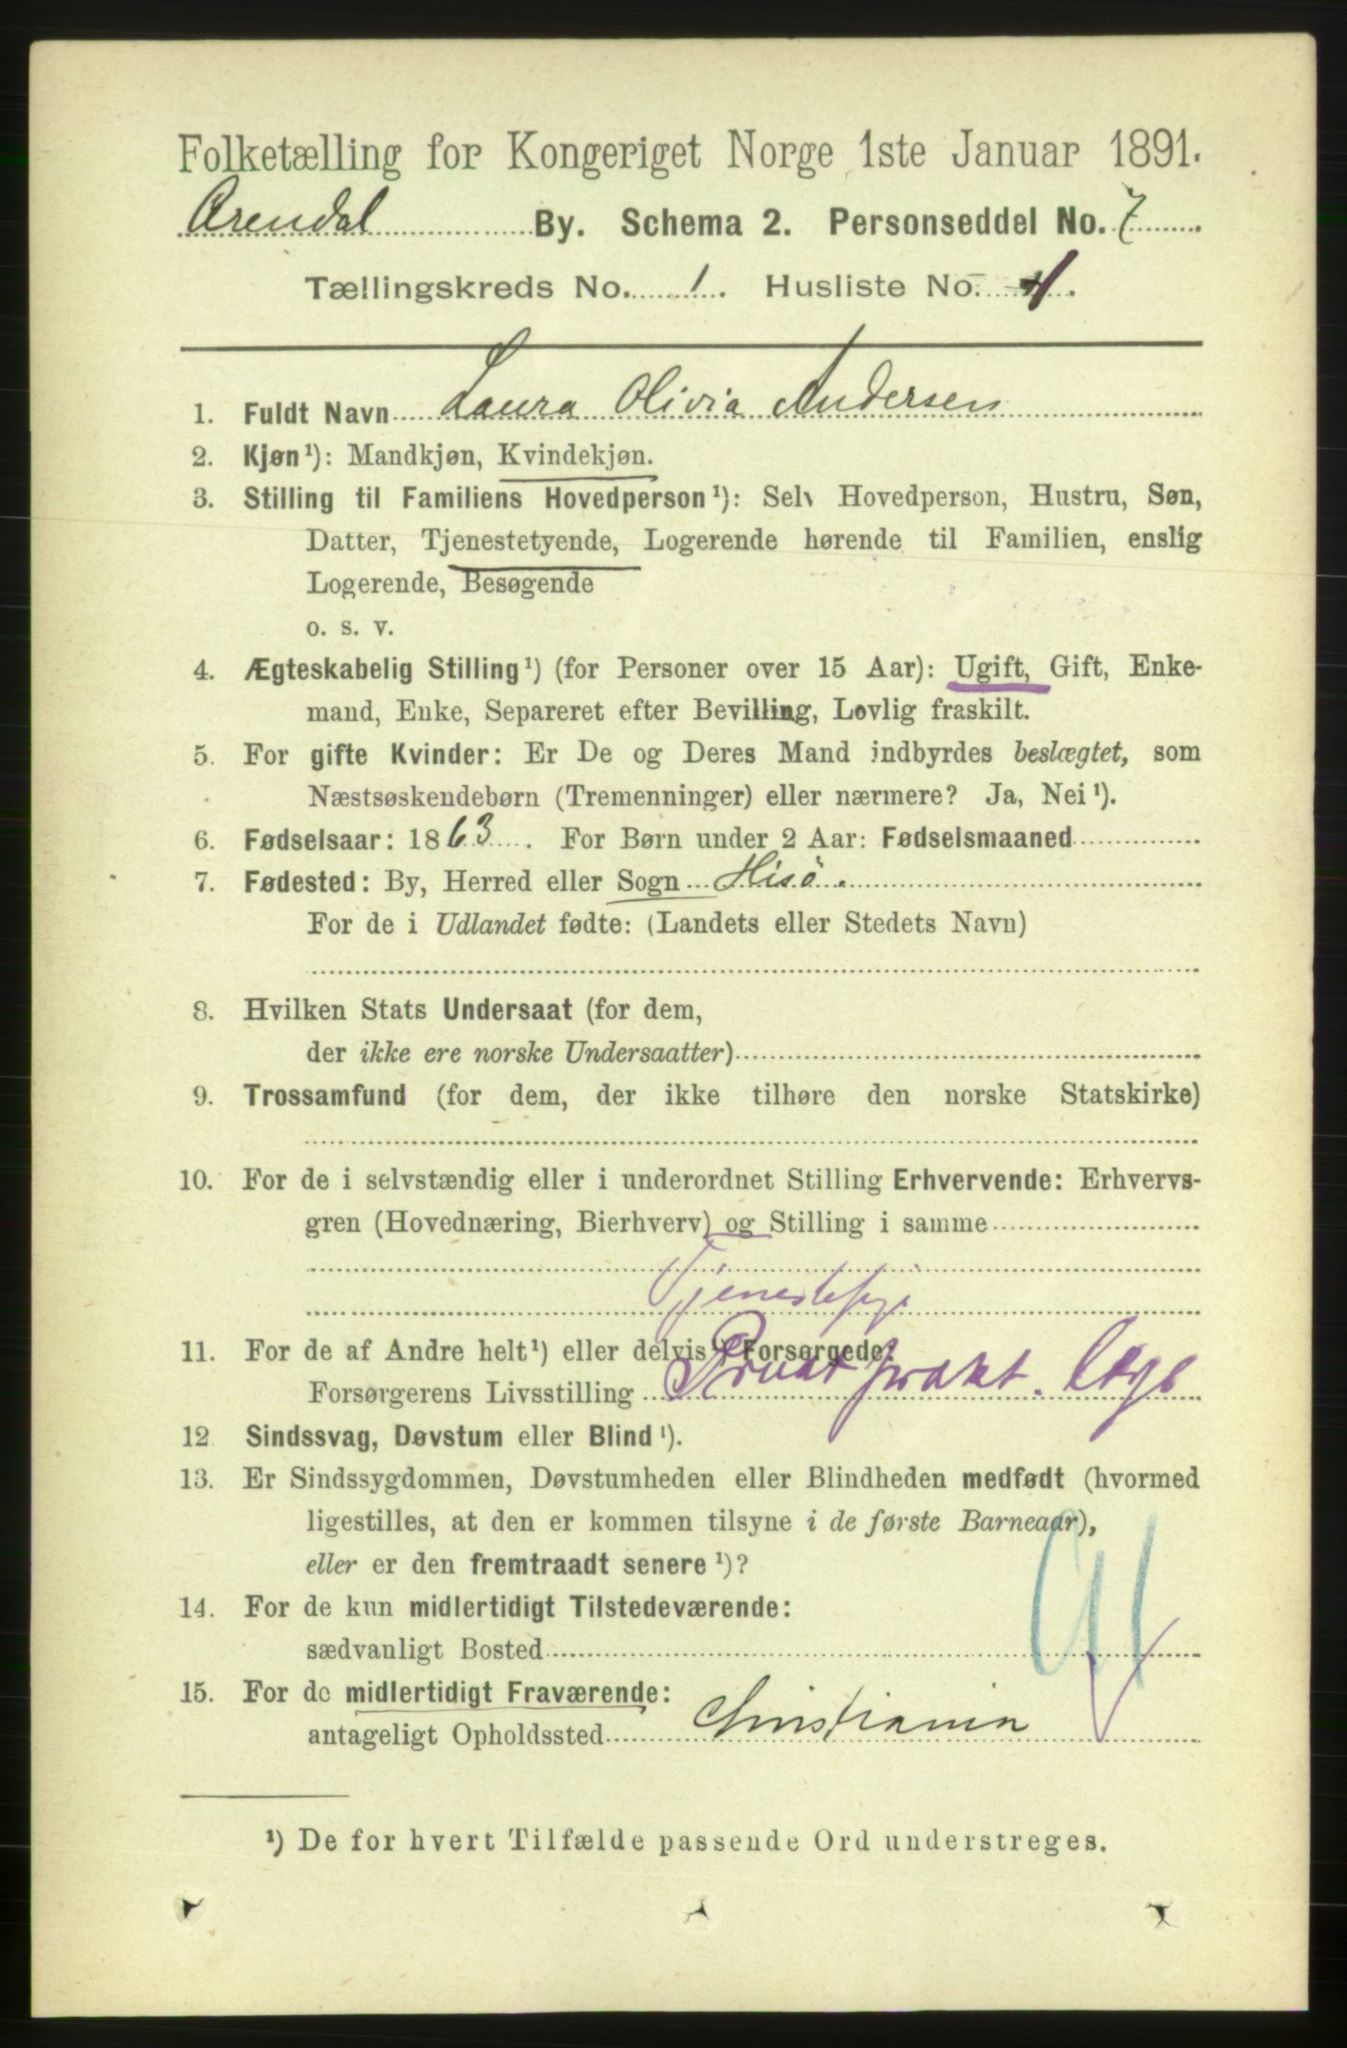 Folketælling for Kongeriget Norge 1ste Januar 1891.
Arendal By. Schema 2. Personseddel No. 7.
Tællingskreds No. 1. Husliste No. 4.
1. Fuldt Navn Laura Olivia Andersen
2. Kjøn¹): Mandkjøn, Kvindekjøn.
3. Stilling til Familiens Hovedperson¹): Selv Hovedperson, Hustru, Søn,
Datter, Tjenestetyende, Logerende hørende til Familien, enslig
Logerende, Besøgende
o. s. v.
4. Ægteskabelig Stilling¹) (for Personer over 15 Aar): Ugift, Gift, Enke-
mand, Enke, Separeret efter Bevilling, Lovlig fraskilt.
5. For gifte Kvinder: Er De og Deres Mand indbyrdes beslægtet, som
Næstsøskendebørn (Tremenninger) eller nærmere? Ja, Nei¹).
6. Fødselsaar: 1863. For Børn under 2 Aar: Fødselsmaaned
7. Fødested: By, Herred eller Sogn Hisö.
For de i Udlandet fødte: (Landets eller Stedets Navn)
8. Hvilken Stats Undersaat (for dem,
der ikke ere norske Undersaatter)
9. Trossamfund (for dem, der ikke tilhøre den norske Statskirke)
10. For de i selvstændig eller i underordnet Stilling Erhvervende: Erhvervs-
gren (Hovednæring, Bierhverv) og Stilling i samme
Tjenestepige
11. For de af Andre helt¹) eller delvis¹) Forsørgede:
Forsørgerens Livsstilling Privat prakt. Læge
12 Sindssvag, Døvstum eller Blind¹).
13. Er Sindssygdommen, Døvstumheden eller Blindheden medfødt (hvormed
ligestilles, at den er kommen tilsyne i de første Barneaar),
eller er den fremtraadt senere¹)?
14. For de kun midlertidigt Tilstedeværende:
sædvanligt Bosted
15. For de midlertidigt Fraværende:
antageligt Opholdssted Christiania
¹) De for hvert Tilfælde passende Ord understreges.